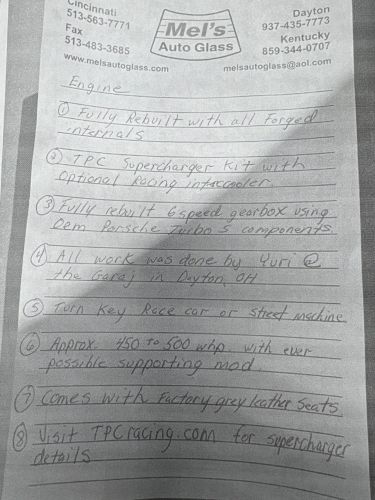 Cincinnati
513-563-7771
Fax
513-483-3685
www.melsautoglass.com
Mel's
Auto Glass
Dayton
937-435-7773
Kentucky
859-344-0707
melsautoglass@aol.com
Engine
① Fully Rebuilt with all forged
internals
② TPC Supercharger Kit with
Optional Racing intercooler
③ Fully rebuilt 6 speed gearbox using
Oem Porsche Turbo S components
④ All work was done by Yuri @
the Garaj in Dayton, OH
⑤ Turn Key Race car or street machine
⑥ Approx. 450 to 500 whp with ever
possible supporting mod
⑦ Comes with Factory grey leather Seats
⑧ Visit TPCracing.com for supercharger
details